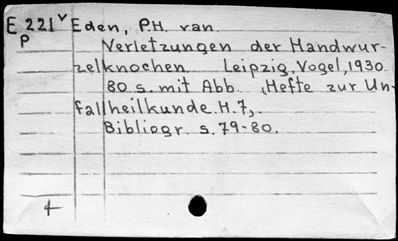 E 221 v Eden, P.H. van.
P Verletzungen der Handwur-
zelknochen Leipzig, Vogel, 1930.
80 s. mit Abb. (Hefte zur Un-
fallheilkunde. H. 7).
Bibliogr. s. 79-80.
4